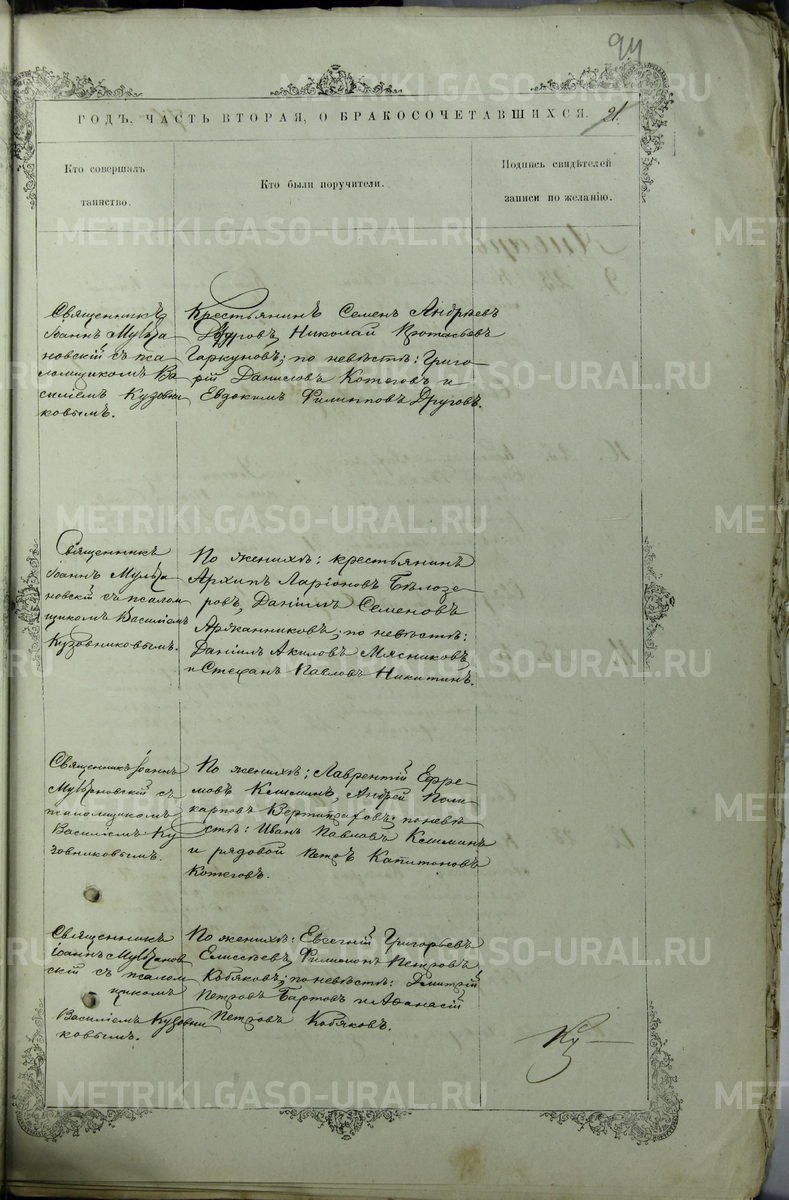 94
ГОДЪ, ЧАСТЬ ВТОРАЯ, О БРАКОСОЧЕТАВШИХСЯ.
21.
Кто совершалъ
таинство.
Кто были поручители.
Подпись свидѣтелей
записи по желанію.
Священникъ
Іоаннъ
новскій съ пса
ломщикомъ Ва
силіемъ Кузовни
ковымъ.
Крестьянинъ Семенъ Андрѣевъ
Друговъ, Николай Протасьевъ
Горкуновъ; по невѣстѣ: Григо
рій Даниловъ Котеговъ и
Евдокимъ Филипповъ Друговъ.
Священникъ
Іоаннъ
новскій съ псалом
щикомъ Василіемъ
Кузовниковымъ.
По женихѣ: крестьянинъ
Архипъ Ларіоновъ Бѣлозе
ровъ, Даніилъ Семеновъ
Аржанниковъ; по невѣстѣ:
Даніилъ Акиловъ Мясниковъ
и Стефанъ Павловъ Никитинъ.
Священникъ Іоаннъ
съ
псаломщикомъ
Василіемъ Ку
зовниковымъ.
По женихѣ: Лаврентій Ефре
мовъ Клишинъ, Андрей Поли
карповъ по невѣ
стѣ: Иванъ Павловъ Клишинъ
и рядовой Петръ Капитоновъ
Котеговъ.
Священникъ
Іоаннъ
скій съ псалом
щикомъ
Василіемъ Кузовни
ковымъ.
По женихѣ: Евгеній Григорьевъ
Елисѣевъ, Филимонъ Петровъ
Кобяковъ; по невѣстѣ: Дмитрій
Петровъ Бартовъ и Аѳанасій
Петровъ Кобяковъ.
METRIKI.GASO-URAL.RU
METRIKI.GASO-URAL.RU
METRIKI.GASO-URAL.RU
METRIKI.GASO-URAL.RU
METRIKI.GASO-URAL.RU
METRIKI.GASO-URAL.RU
METRIKI.GASO-URAL.RU
METRIKI.GASO-URAL.RU